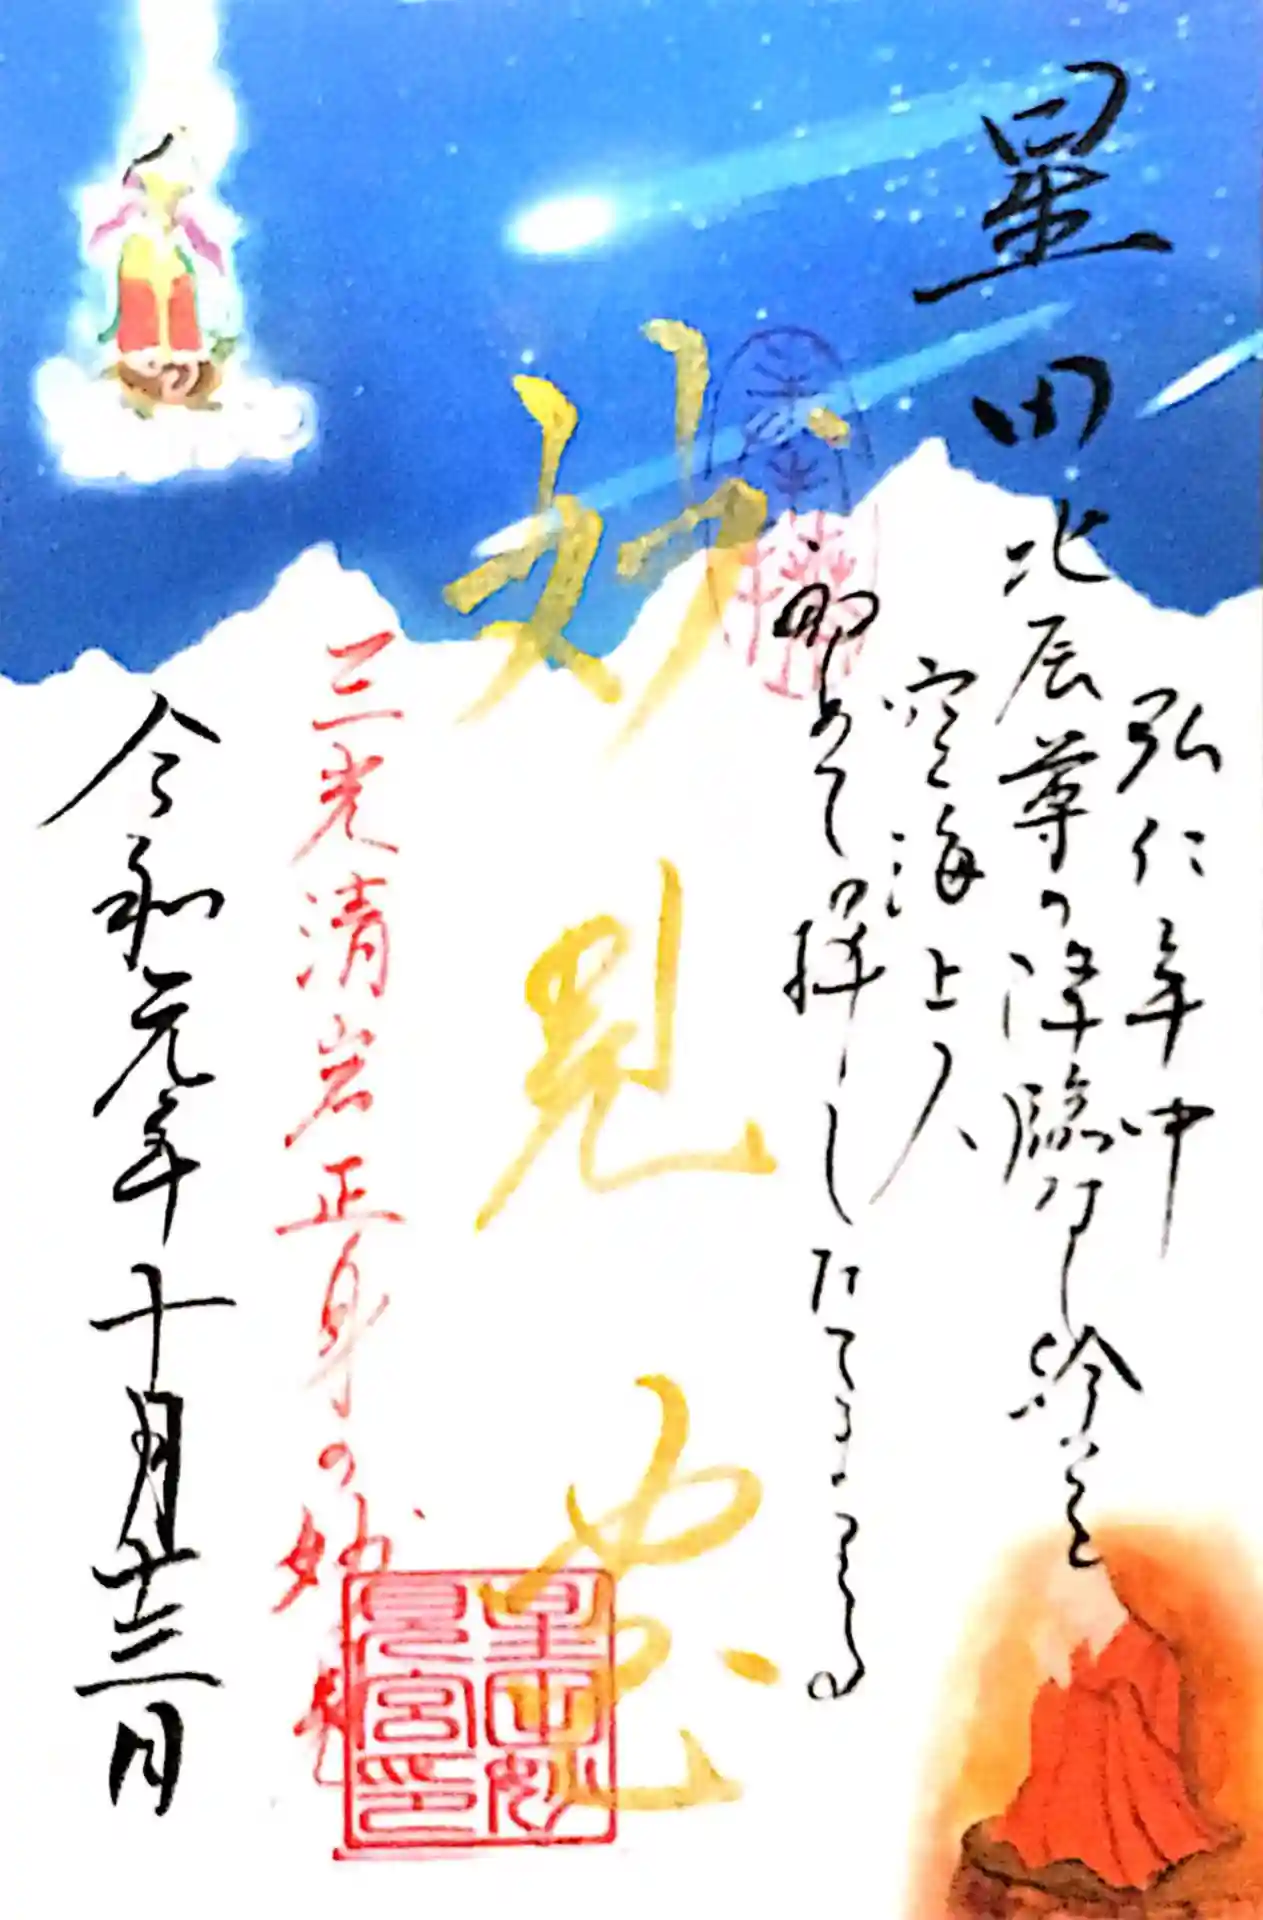 星田
弘仁年中
北辰尊の降臨ましし給ふを
空海上人
初めて拝したてまつる
奉拝
妙見宮
三光清岩正身の妙見
星田妙見宮印
令和元年十月廿三日